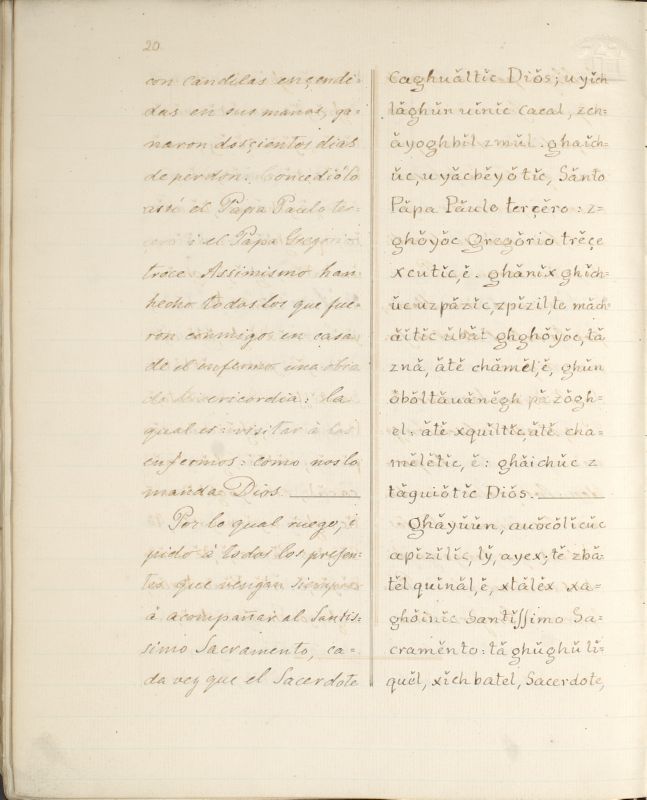 20
con candelas ençendi=
das en sus manos, ga=
naron dosçientos dias
de perdon. Concediólo
assi el Pàpa Paulo ter=
çero: i el Pàpa Gregorio
trece. Assimismo han
hecho todos los que fue=
ron conmigo en casa
de el enfermo una obra
de Misericordia: la
qual es: visitar à los
enfermos: como nos lo
manda Dios.
Por lo qual ruego, i
pido à todos los presen=
tes que vengan siempre
à acompañar al Santis=
simo Sacramento, ca=
da vez que el Sacerdote
Caghuăltĭc Diŏs; uyĭch
lăghŭn uinic Cacal, zch=
ăyoghbil zmŭl. ghaĭch=
ŭc, uyăcbĕyŏtĭc, Sănto
Păpa Păulo terçĕro: z=
ghŏyŏc Gregŏrio trĕçe
xcutĭc, ĕ. ghănĭx ghĭch=
ŭc uzpăzĭc, zpĭzĭl, te măch=
ăĭtĭc ŭbăt ghghŏyŏc, tă
znă, ătĕ chămĕl, ĕ, ghŭn
ŏbŏltăuănĕgh păzŏgh=
el: ătĕ xquĭltĭc, ătĕ cha=
mĕlĕtĭc, ĕ: ghăichŭc z
tăguiŏtĭc Diŏs.
Ghăyŭŭn, auŏcŏlĭcŭc
apĭzĭlĭc, lÿ, ayex; tĕ zbă=
tĕl quinăl, ĕ, xtălĕx xa=
ghŏinĭc Santĭssimo Sa=
cramĕnto: tă ghŭghŭ lĭ=
quĕl, xĭch batel, Sacerdote,